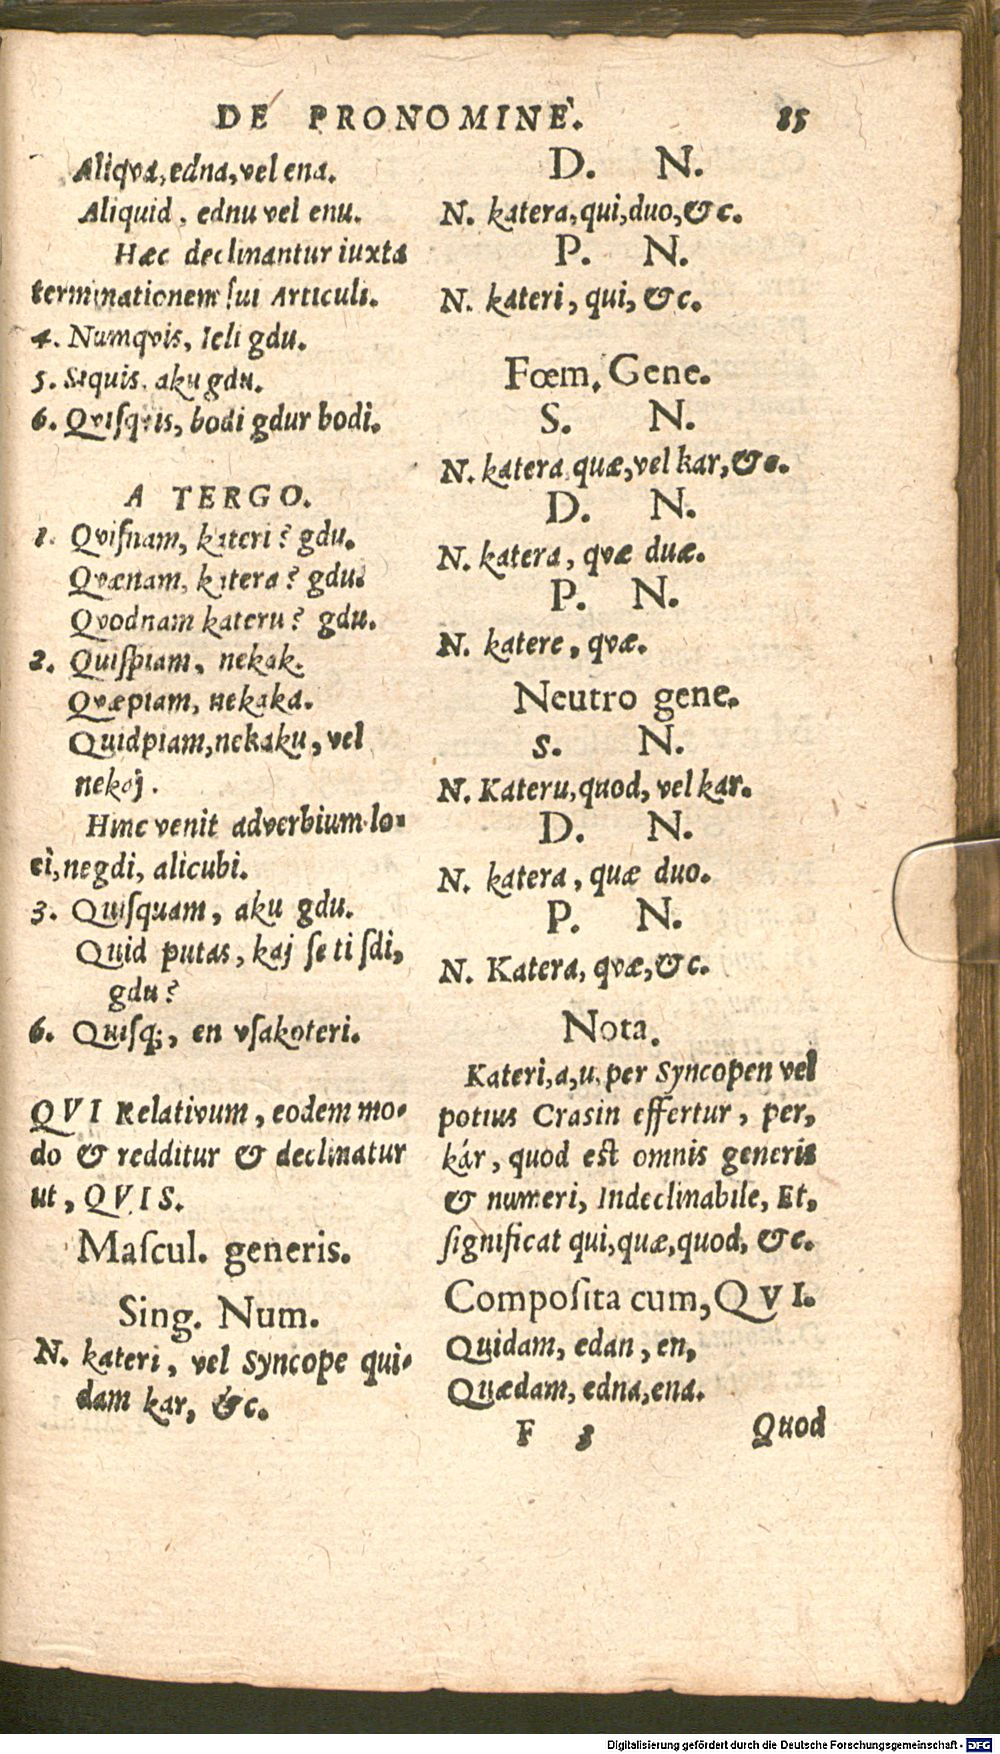 DE PRONOMINE.
85
Aliqva, edna, vel ena.
Aliquid, ednu vel enu.
Hæc declinantur iuxta
terminationem sui Articuli.
4. Numqvis, Ieli gdu.
5. Siquis, aku gdu.
6. Qviſqvis, bodi gdur bodi.
A TERGO.
1. Qviſnam, kateri? gdu.
Qvænam, katera? gdu.
Qvodnam kateru? gdu.
2. Quiſpiam, nekak.
Qvæpiam, nekaka.
Quidpiam, nekaku, vel
nekoj.
Hinc venit adverbium lo-
ci, negdi, alicubi.
3. Quiſquam, aku gdu.
Quid putas, kaj ſe ti ſdi,
gdu?
6. Quiſq;, en vſakoteri.
QVI Relativum, eodem mo-
do & redditur & declinatur
ut, QVIS.
Maſcul. generis.
Sing. Num.
N. kateri, vel Syncope qui-
dam kar, &c.
D. N.
N. katera, qui, duo, &c.
P. N.
N. kateri, qui, &c.
Fœm. Gene.
S. N.
N. katera quæ, vel kar, &c.
D. N.
N. katera, qvæ duæ.
P. N.
N. katere, qvæ.
Neutro gene.
S. N.
N. Kateru, quod, vel kar.
D. N.
N. katera, quæ duo.
P. N.
N. Katera, qvæ, &c.
Nota.
Kateri, a, u, per Syncopen vel
potius Crasin effertur, per,
kár, quod est omnis generis
& numeri, Indeclinabile, Et,
ſignificat qui, quæ, quod, &c.
Compoſita cum, QVI.
Quidam, edan, en,
Quædam, edna, ena.
F 3
Quod
Digitalisierung gefördert durch die Deutsche Forschungsgemeinschaft - DFG